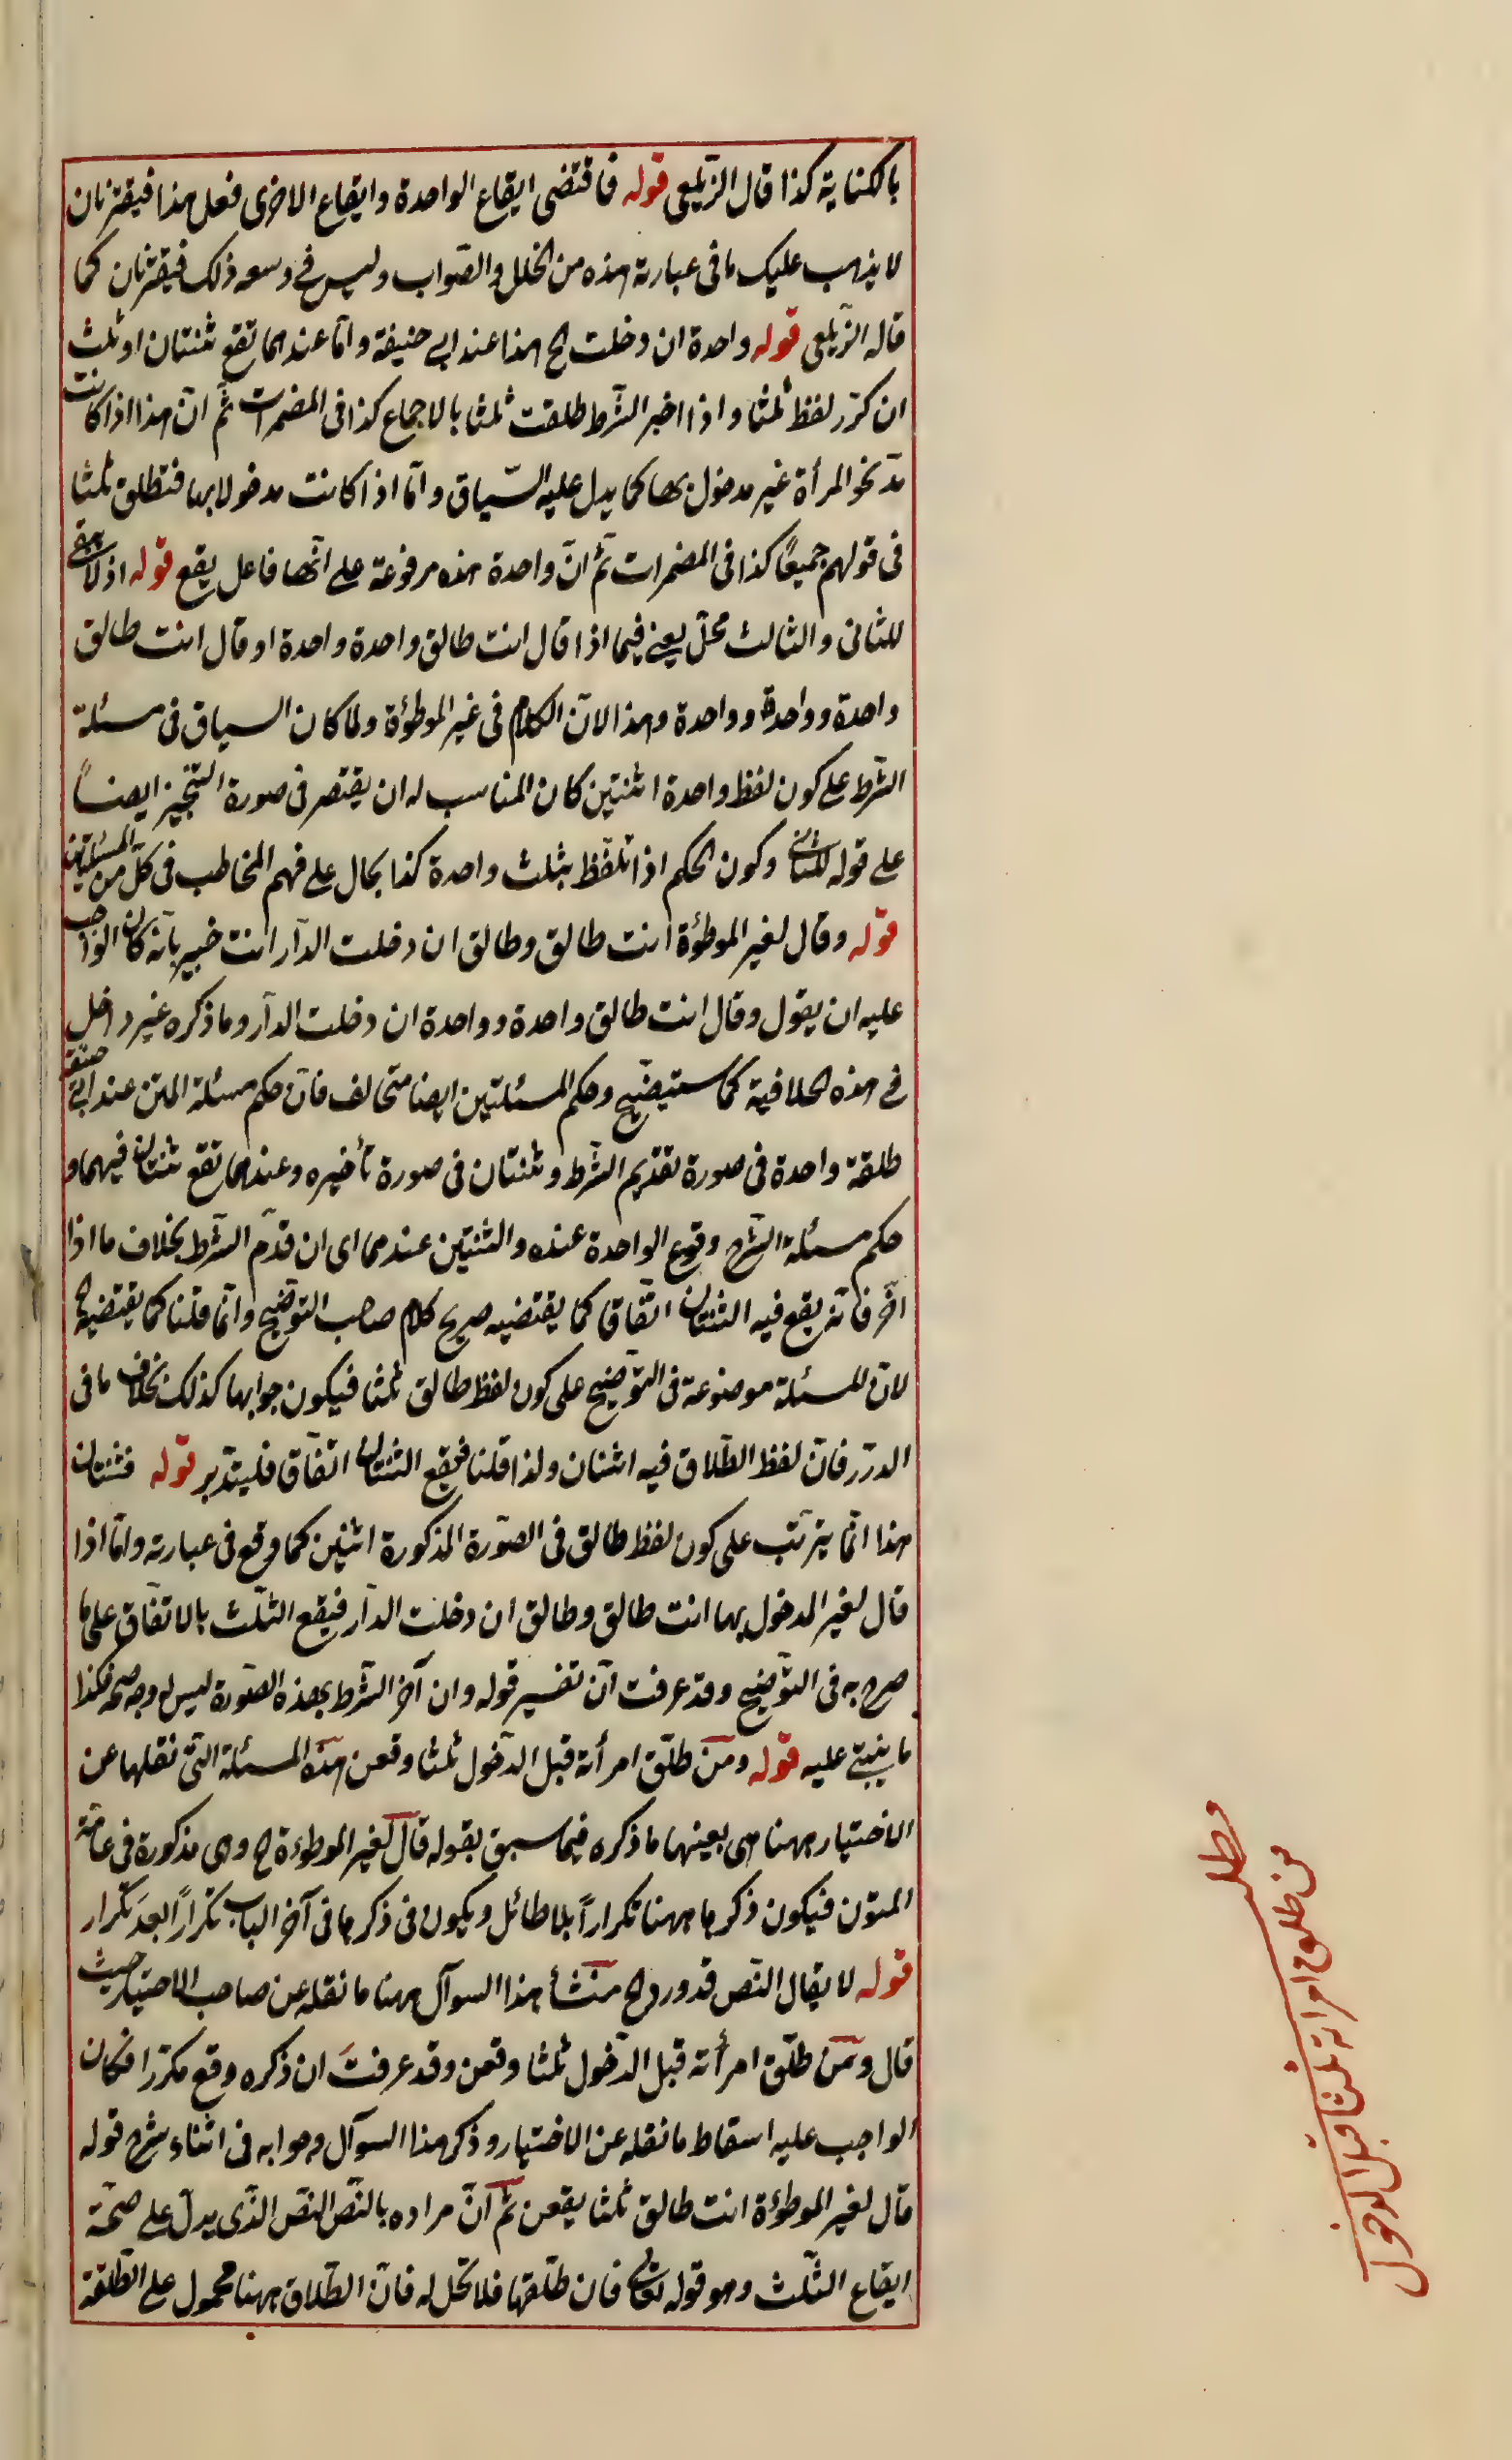 بالكناية كذا قال الزيلعي قوله فاقتضى ايقاع الواحدة وايقاع الاخرى فعل هذا فيقترنان
لا يذهب عليك ما في عبارته هذه من الخلل والصواب وليس في وسعه ذلك فيقترنان كما
قاله الزيلعي قوله واحدة ان دخلت الخ هذا عند ابي حنيفة واما عندهما تقع ثنتان او ثلث
ان كرر لفظ ثلثا واذا اخر الشرط طلقت ثلثا بالاجماع كذا في المضمرات ثم ان هذا اذا كانت
المرأة غير مدخول بها كما يدل عليه السياق واما اذا كانت مدخولا بها فتطلق ثلثا
في قولهم جميعًا كذا في المضمرات ثم ان واحدة هذه مرفوعة على انها فاعل يقع قوله اذ لا يبقى
للثاني والثالث محل يعني فيما اذا قال انت طالق واحدة واحدة او قال انت طالق
واحدة وواحدة وواحدة وهذا لان الكلام في غير الموطؤة ولما كان السياق في مسئلة
الشرط على كون لفظ واحدة اثنتين كان المناسب له ان يقتصر في صورة التنجيز ايضاً
على قوله للثاني وكون الحكم اذا تلفظ بثلث واحدة كذا يحال على فهم المخاطب في كل من المسئلتين
قوله وقال لغير الموطؤة انت طالق وطالق ان دخلت الدار انت خبير بانه كان الواجب
عليه ان يقول وقال انت طالق واحدة وواحدة ان دخلت الدار وما ذكره غير داخل
في هذه الخلافية كما ستيضح وحكم المسئلتين ايضا متخالف فان حكم مسئلة المتن عند ابي حنيفة
طلقة واحدة في صورة تقديم الشرط وثنتان في صورة تأخيره وعندهما تقع ثنتان فيهما و
حكم مسئلة الشرح وقوع الواحدة عنده والثنتين عندهما اى ان قدم الشرط بخلاف ما اذا
اخر فانه يقع فيه الثنتان اتفاقا كما يقتضيه صريح كلام صاحب التوضيح وانما قلنا كما يقتضيه الخ
لان المسئلة موضوعة في التوضيح على كون لفظ طالق ثلثا فيكون جوابها كذلك بخلاف ما في
الدرر فان لفظ الطلاق فيه اثنان ولذا قلنا فيقع الثنتان اتفاق فليتدبر قوله فثنتان
هذا انما يترتب على كون لفظ طالق في الصورة المذكورة اثنين كما وقع في عبارته واما اذا
قال لغير المدخول بها انت طالق وطالق ان دخلت الدار فيقع الثلث بالاتفاق على ما
صرح به في التوضيح وقد عرفت ان تفسير قوله وان آخر الشرط بهذه الصورة ليس له وجه صحة فكذا
ما يبتنى عليه قوله ومن طلق امرأته قبل الدخول ثلثا وقعن هذه المسئلة التي نقلها عن
الاختيار ههنا هى بعينها ما ذكره فيما سبق بقوله قال لغير الموطوءة الخ وهى مذكورة في عامة
المتون فيكون ذكرها ههنا تكراراً بلا طائل ويكون في ذكرها في آخر الباب تكراراً بعد تكرار
قوله لا يقال النص قد ورد الخ منشأ هذا السوآل ههنا ما نقله عن صاحب الاختيار حيث
قال ومن طلق امرأته قبل الدخول ثلثا وقعن وقد عرفت ان ذكره وقع مكررا فكان
الواجب عليه اسقاط ما نقله عن الاختيار وذكر هذا السوآل وجوابه في اثناء شرح قوله
قال لغير الموطؤة انت طالق ثلثا يقعن ثم ان مراده بالنص النص الذي يدل على صحة
ايقاع الثلث وهو قوله تعالى فان طلقها فلا تحل له فان الطلاق ههنا محمول على الطلقة
مطلب
من طلق امراته ثلثا قبل الدخول